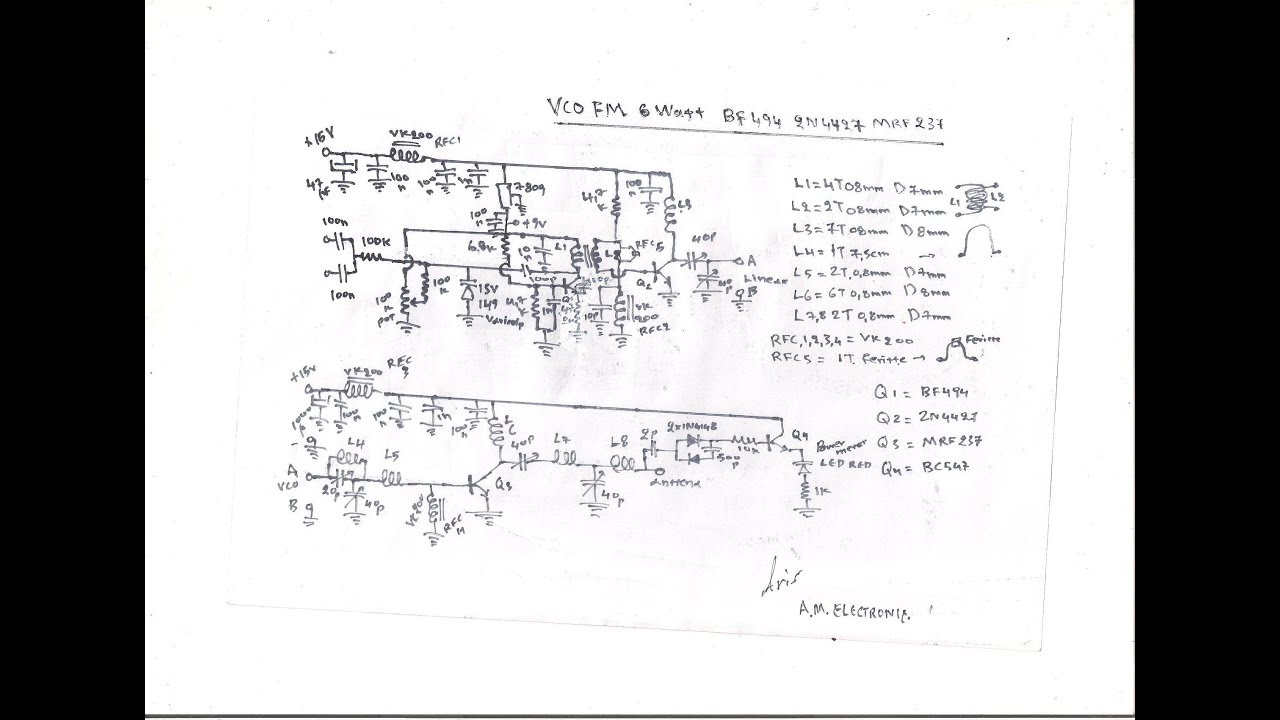 VCO FM 6 Watt BF494 2N4427 MRF237
+15V
VK200 RFC1
100n
100n
1n
7809
100n
+9V
4,7K
100n
100n
100K
100n
100K
100K pot
6.8K
L1
15V
149
Varicap
RFC5
Q2
VK200
RFC2
10p
40p
40p
A
Linear
B
L1=4T08mm D7mm
L2=2T08mm D7mm
L3=7T08mm D8mm
L4=1T7,5cm
L5=2T,0,8mm D7mm
L6=6T0,8mm D8mm
L7,8 2T0,8mm D7mm
RFC,1,2,3,4=VK200
RFC5=1T Feritte
L1
L2
Feritte
Q1=BF494
Q2=2N4427
Q3=MRF237
Q4=BC547
+15V
VK200
RFC3
100n
100n
1n
100n
L4
L5
A
VCO
B
20p
40p
VK200
RFC4
Q3
40p
L7
40p
L8
2p
2x1N4148
500p
10K
Q4
Power meter
LED RED
1K
antena
Aris
A.M. ELECTRONIC.